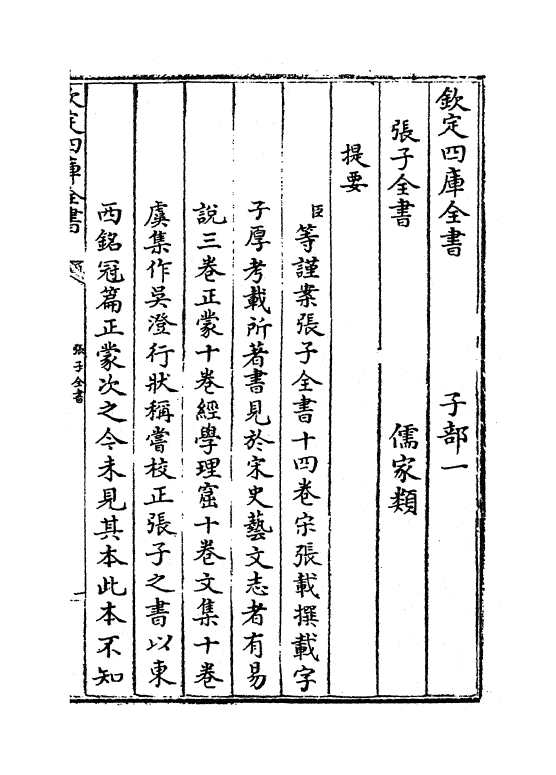 欽定四庫全書　　　子部一
張子全書　　　　　儒家類
提要
臣等謹案張子全書十四卷宋張載撰載字
子厚考載所著書見於宋史藝文志者有易
說三卷正蒙十卷經學理窟十卷文集十卷
虞集作吳澄行狀稱嘗校正張子之書以東
西銘冠篇正蒙次之今未見其本此本不知
欽定四庫全書
張子全書
一